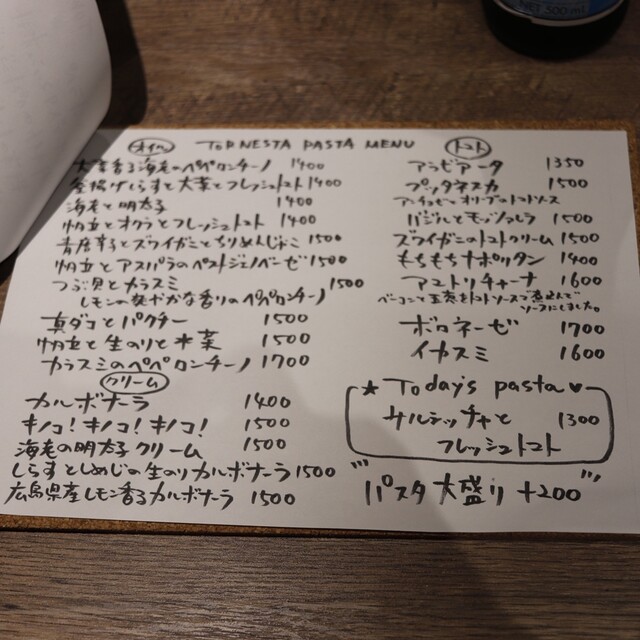 NET 500ml
TOP NESTA PASTA MENU
オイル
大葉香る海老のペペロンチーノ 1400
釜揚げしらすと大葉とフレッシュトマト 1400
海老と明太子 1400
帆立とオクラとフレッシュトマト 1400
青唐辛子とズワイガニとちりめんじゃこ 1500
帆立とアスパラのペストジェノベーゼ 1500
つぶ貝とカラスミ 1500
レモンの爽やかな香りのペペロンチーノ
真ダコとパクチー 1500
帆立と生のりと水菜 1500
カラスミのペペロンチーノ 1700
クリーム
カルボナーラ 1400
キノコ!キノコ!キノコ! 1500
海老の明太子クリーム 1500
しらすとしめじの生のりカルボナーラ 1500
広島県産レモン香るカルボナーラ 1500
トマト
アラビアータ 1350
プッタネスカ 1500
アンチョビとオリーブのトマトソース
バジルとモッツァレラ 1500
ズワイガニのトマトクリーム 1500
もちもちナポリタン 1400
アマトリチャーナ 1600
ベーコンと玉ねぎをトマトソースで煮込んで
ソースにしました。
ボロネーゼ 1700
イカスミ 1600
★ Today's pasta ♥
サルティッチャと 1300
フレッシュトマト
パスタ大盛り +200